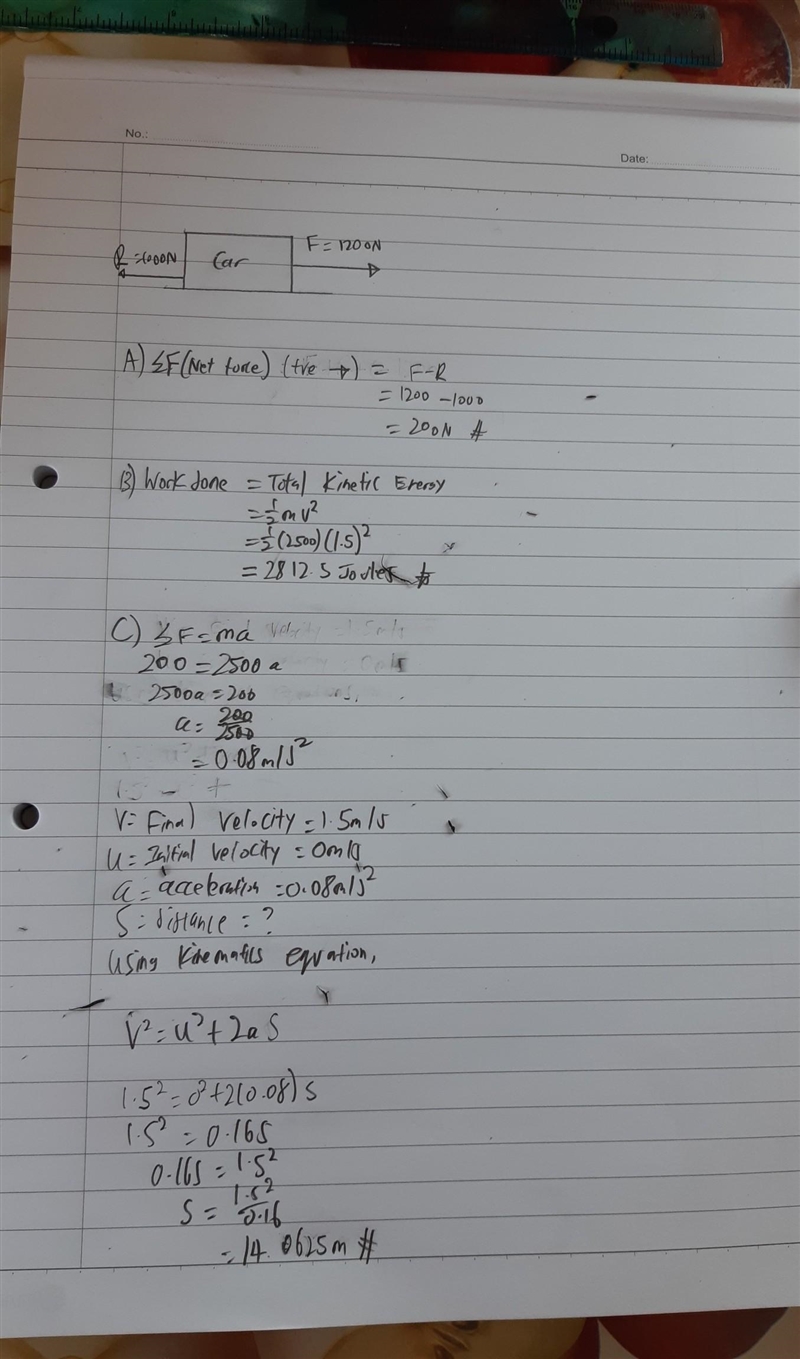 No.:
Date:
R=1000N
Car
F=1200N
A) ΣF(Net force) (+ve →) = F-R
= 1200 - 1000
= 200N #
B) Work done = Total Kinetic Energy
= ½mv²
= ½(2500)(1.5)²
= 2812.5 Joules #
C) ΣF=ma
200=2500a
2500a=200
a= 200/2500
= 0.08m/s²
V= Final velocity = 1.5m/s
u= Initial velocity = 0m/s
a= acceleration = 0.08m/s²
S= distance = ?
Using Kinematics equation,
V²=u²+2aS
1.5²=0²+2(0.08)S
1.5²=0.16S
0.16S=1.5²
S= 1.5²/0.16
= 14.0625m #